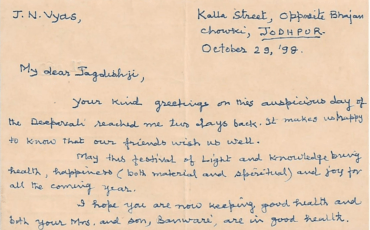 J. N. Vyas,
Kalla Street, Opposite Bhajan
chowki, JODHPUR.
October 29, '98.
My dear Jagdishji,
Your kind greetings on this auspicious day of
the Deepavali reached me two days back. It makes us happy
to know that our friends wish us well.
May this festival of Light and Knowledge bring
health, happiness (both material and spiritual) and joy for
all the coming year.
I hope you are now keeping good health and
both your Mrs. and son, Banwari, are in good health.